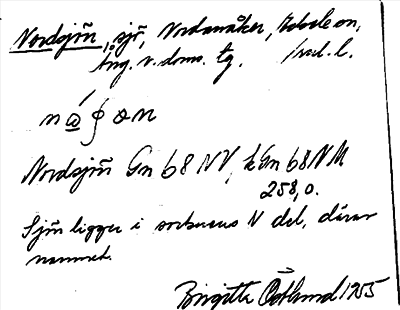 Nordsjön, sjö, Nordanåker,
Ång. v. doms. tg.
Nordsjön Gn 68 NV, kGn 68 NM
258,0.
Sjön ligger i sockens N del, därav
namnet.
Birgitta Östlund 1955